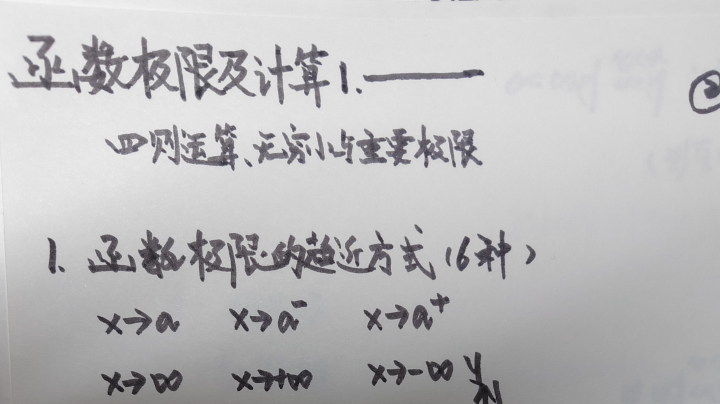 函数极限及计算1.——
②
四则运算、无穷小与重要极限
1. 函数极限的趋近方式(6种)
x→a x→a⁻ x→a⁺
x→∞ x→+∞ x→-∞